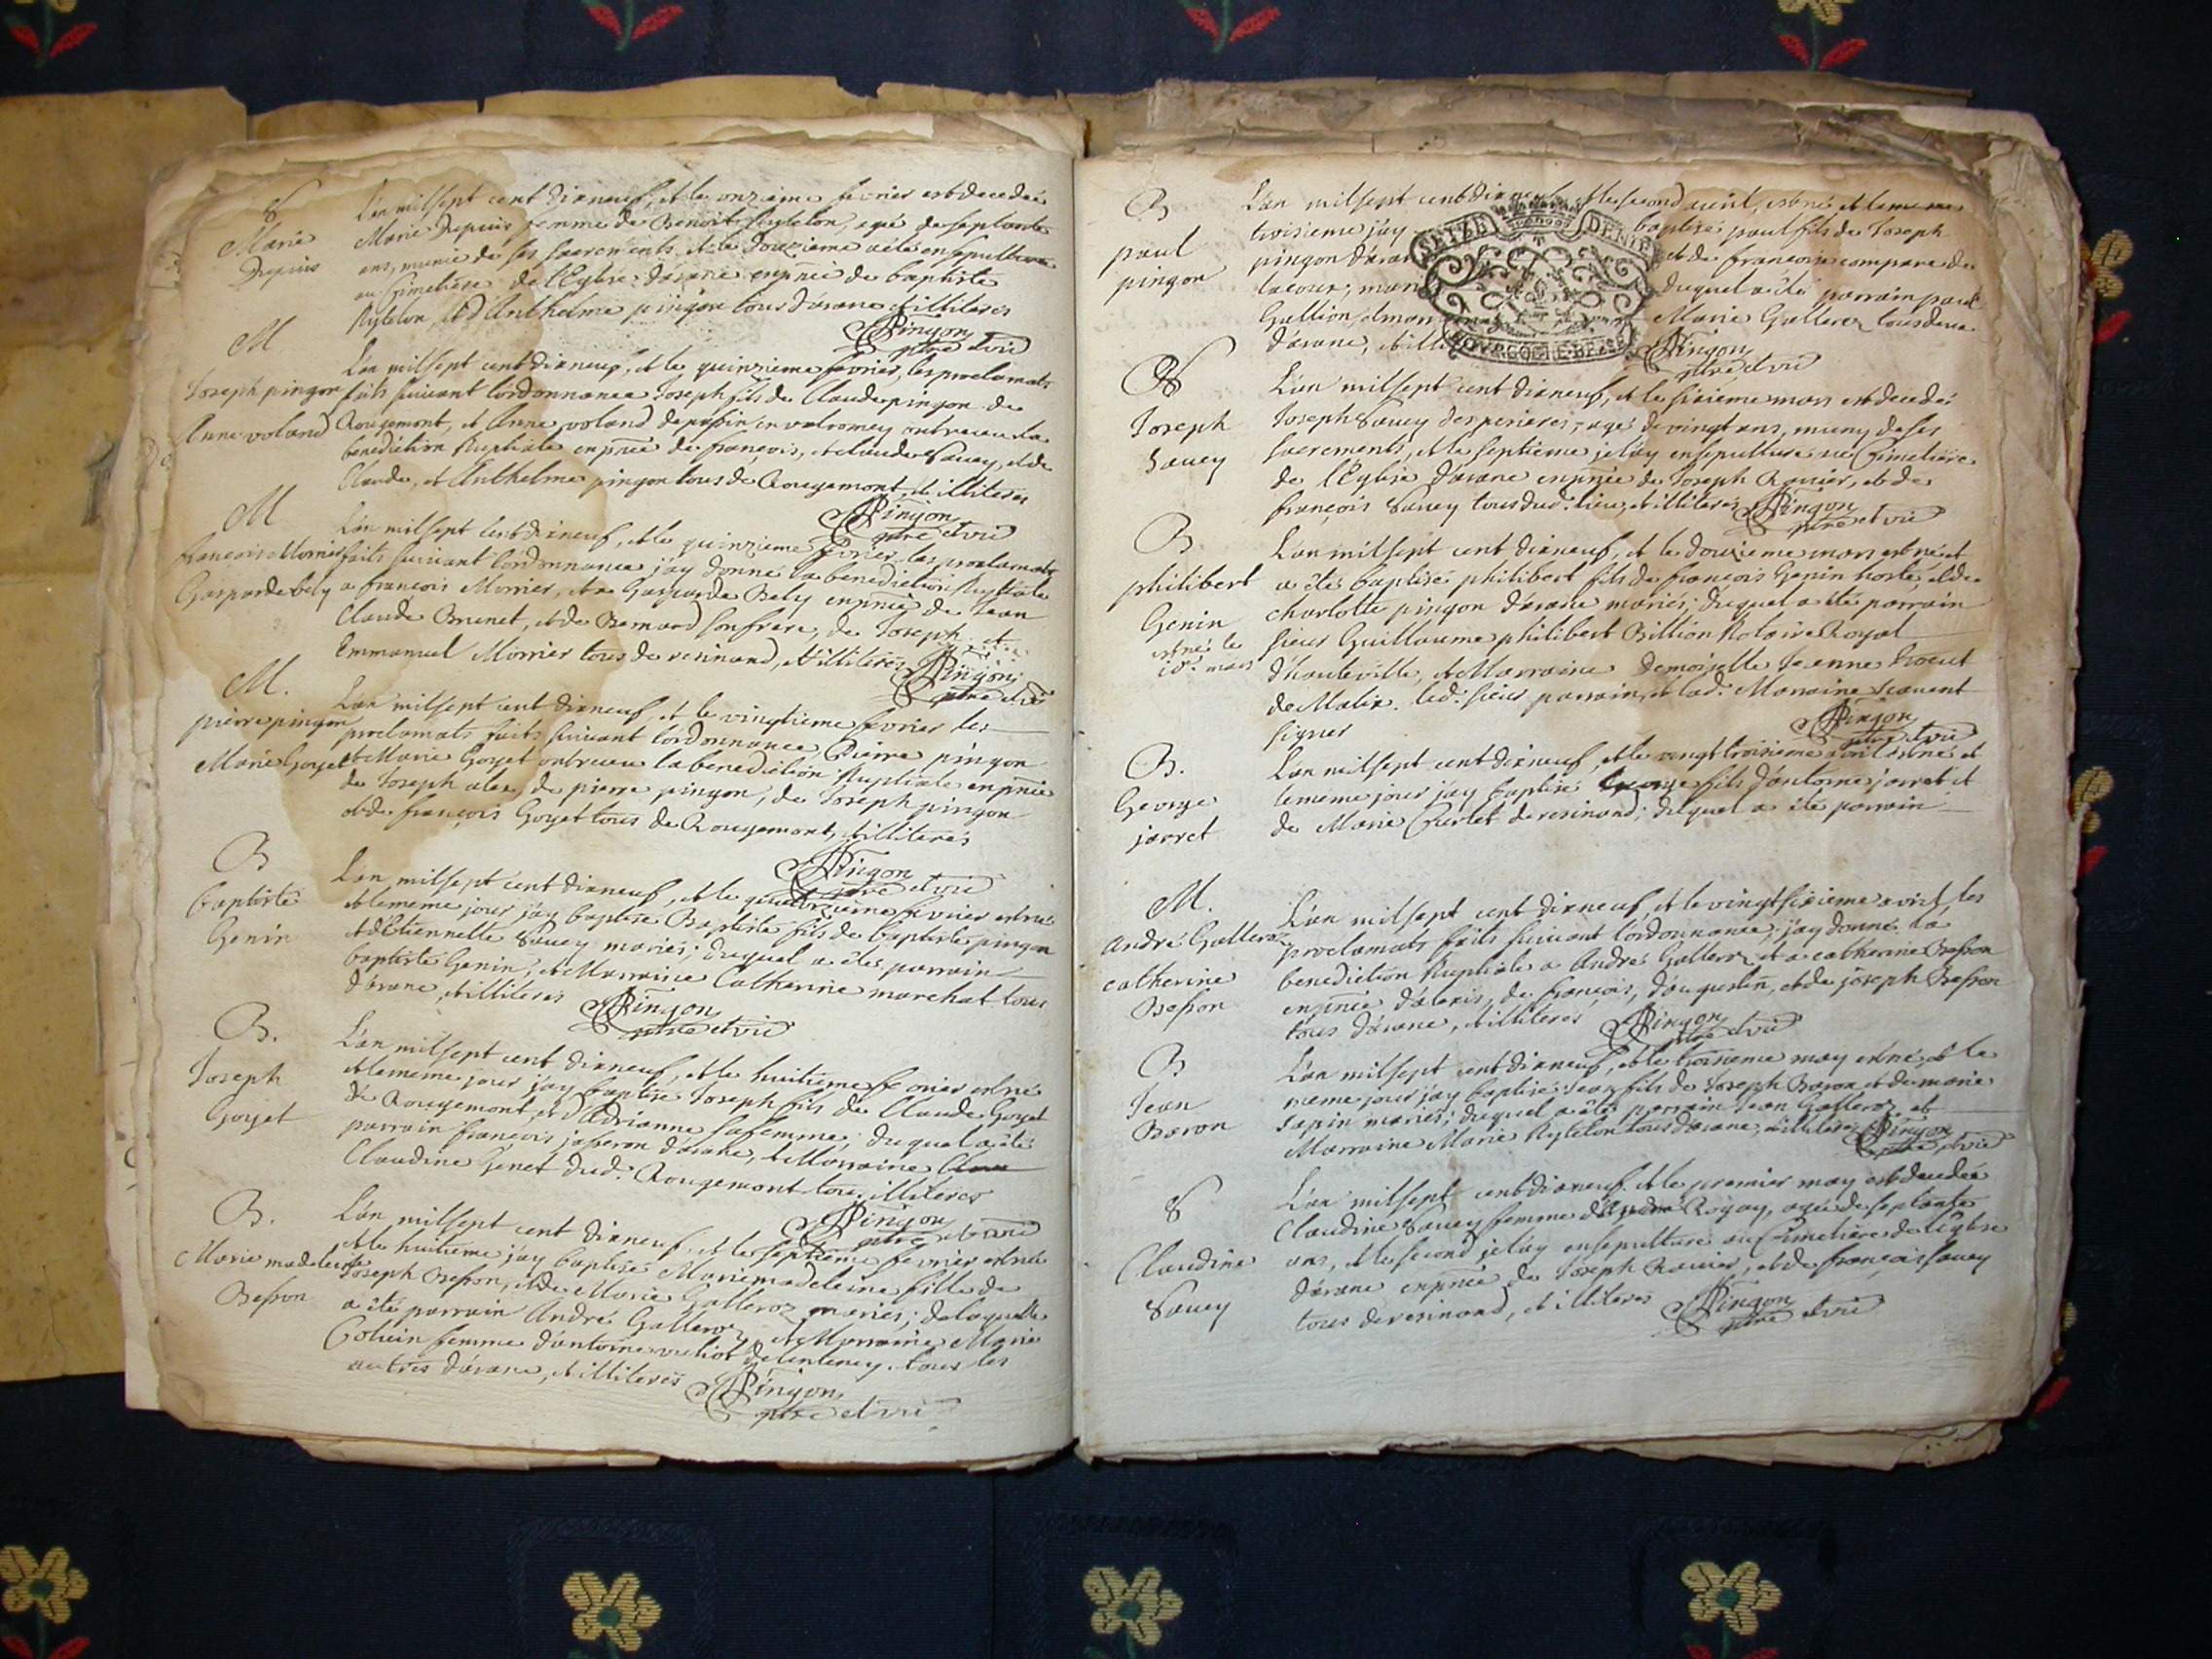 S
Marie
Depuis
L'an milsept cent dixneuf, et le onzieme fevrier est decedée
Marie Depuis femme de Benoit Rytelon, agée de septante
ans, munie de ses sacrements et le douzieme a eté ensepulturée
au Cimetiere de l'Eglise d'arane en pñce de baptiste
Rytelon, et d'Anthelme pingon tous d'arane et illiterés
Pingon
ptre et vic
M
Joseph pingon
Anne voland
L'an milsept cent dixneuf, et le quinzieme fevrier, les proclamats
faits suivant l'ordonnance Joseph fils de Claude pingon de
Rougemont, et Anne voland de passin en valromey ont receu la
benediction Nuptiale en pñce de françois, et claude Savey, et de
Claude, et Anthelme pingon tous de Rougemont, et illiterés
Pingon
ptre et vic
M
francois Morrier
Gasparde bely
L'an milsept cent dixneuf, et le quinzieme fevrier les proclamats
faits suivant l'ordonnance j'ay donné la benediction Nuptiale
a françois Morrier, et a Gasparde Bely en pñce de Jean
Claude Brunet, et de Bernard son frere, de Joseph et
Emmanuel Morrier tous de resinand, et illiterés
Pingon
ptre et vic
M.
pierre pingon
Marie Goyet
L'an milsept cent dixneuf et le vingtieme fevrier les
proclamats faits suivant l'ordonnance Pierre pingon
et Marie Goyet ont receu la benediction Nuptiale en pñce
de Joseph alex, de pierre pingon, de Joseph pingon
et de françois Goyet tous de Rougemont, et illiterés
Pingon
ptre et vic
B
baptiste
Genin
L'an milsept cent dixneuf, et le quatorzieme fevrier est né
et le meme jour j'ay baptisé Baptiste fils de baptiste pingon
et d'Etiennette Savey mariés; duquel a eté parrain
baptiste Genin, et Marraine Catherine marchat tous
d'arane, et illiterés
Pingon
ptre et vic
B.
Joseph
Goyet
L'an milsept cent dixneuf, et le huitieme fevrier est né
et le meme jour j'ay baptisé Joseph fils de Claude Goyet
de Rougemont, et d'Adrianne sa femme, duquel a eté
parrain françois jaseron d'arane, et Marraine
Claudine Genet dud. Rougemont tous illiterés
Pingon
ptre et vic
B.
Marie madeleine
Besson
L'an milsept cent dixneuf, et le septieme fevrier est née
et le huitieme j'ay baptisé Marie madeleine fille de
Joseph Besson, et de Marie Galleroz mariés; de laquelle
a eté parrain André Galleroz, et Marraine Marie
femme d'antoine tous les
autres d'arane, et illiterés
Pingon
ptre et vic
B
paul
pingon
L'an milsept cent dixneuf le second avril, est né et le meme
troisieme j'ay baptisé paul fils de Joseph
pingon d'aran et de francoise compare de
lacoux, mari duquel a eté parrain paul
Gallion, et mar Marie Galleroz tous deux
d'arane, et illi
Pingon
ptre et vic
SEIZE DENIE
S
Joseph
Savey
L'an milsept cent dixneuf, et le sixieme mars est decedé
Joseph Savey des perieres, agé de vingt ans, muny de ses
sacrements, et le septieme je l'ay ensepulturé au Cimetiere
de l'Eglise d'arane en pñce de Joseph Ravier, et de
françois Savey tous dud. lieu, et illiterés
Pingon
ptre et vic
B
philibert
Genin
est né le
10e mars
L'an milsept cent dixneuf, et le douzieme mars est né et
a eté baptisé philibert fils de françois Genin hoste, et de
charlotte pingon d'arane mariés; duquel a eté parrain
sieur Guillaume philibert Billion Notaire Royal
d'hauteville, et Marraine Demoiselle Jeanne
de Malix. led. sieur parrain, et lad. Marraine scavent
signer
Pingon
ptre et vic
B.
George
jarret
L'an milsept cent dixneuf, et le vingt troisieme avril est né et
le meme jour j'ay baptisé George fils d'antoine jarret et
de Marie Curlet de resinand; duquel a eté parrain
M.
André Galleroz
catherine
Besson
L'an milsept cent dixneuf, et le vingt sixieme avril les
proclamats faits suivant l'ordonnance; j'ay donné la
benediction Nuptiale a André Galleroz, et a catherine Besson
en pñce d'alexis, de françois, d'augustin, et de joseph Besson
tous d'arane, et illiterés
Pingon
ptre et vic
B
Jean
Baron
L'an milsept cent dixneuf, et le troisieme may est né, et le
meme jour j'ay baptisé Jean fils de Joseph Baron et de marie
sapin mariés; duquel a eté parrain Jean Galleroz, et
Marraine Marie Rytelon tous d'arane, et illiterés
Pingon
ptre et vic
S
Claudine
Savey
L'an milsept cent dixneuf. et le premier may est decedée
Claudine Savey femme d'André Rogay, agée de septante
ans, et le second je l'ay ensepulturé au Cimetiere de l'Eglise
d'arane en pñce de Joseph Ravier, et de françois Savey
tous de resinand, et illiterés
Pingon
ptre et vic